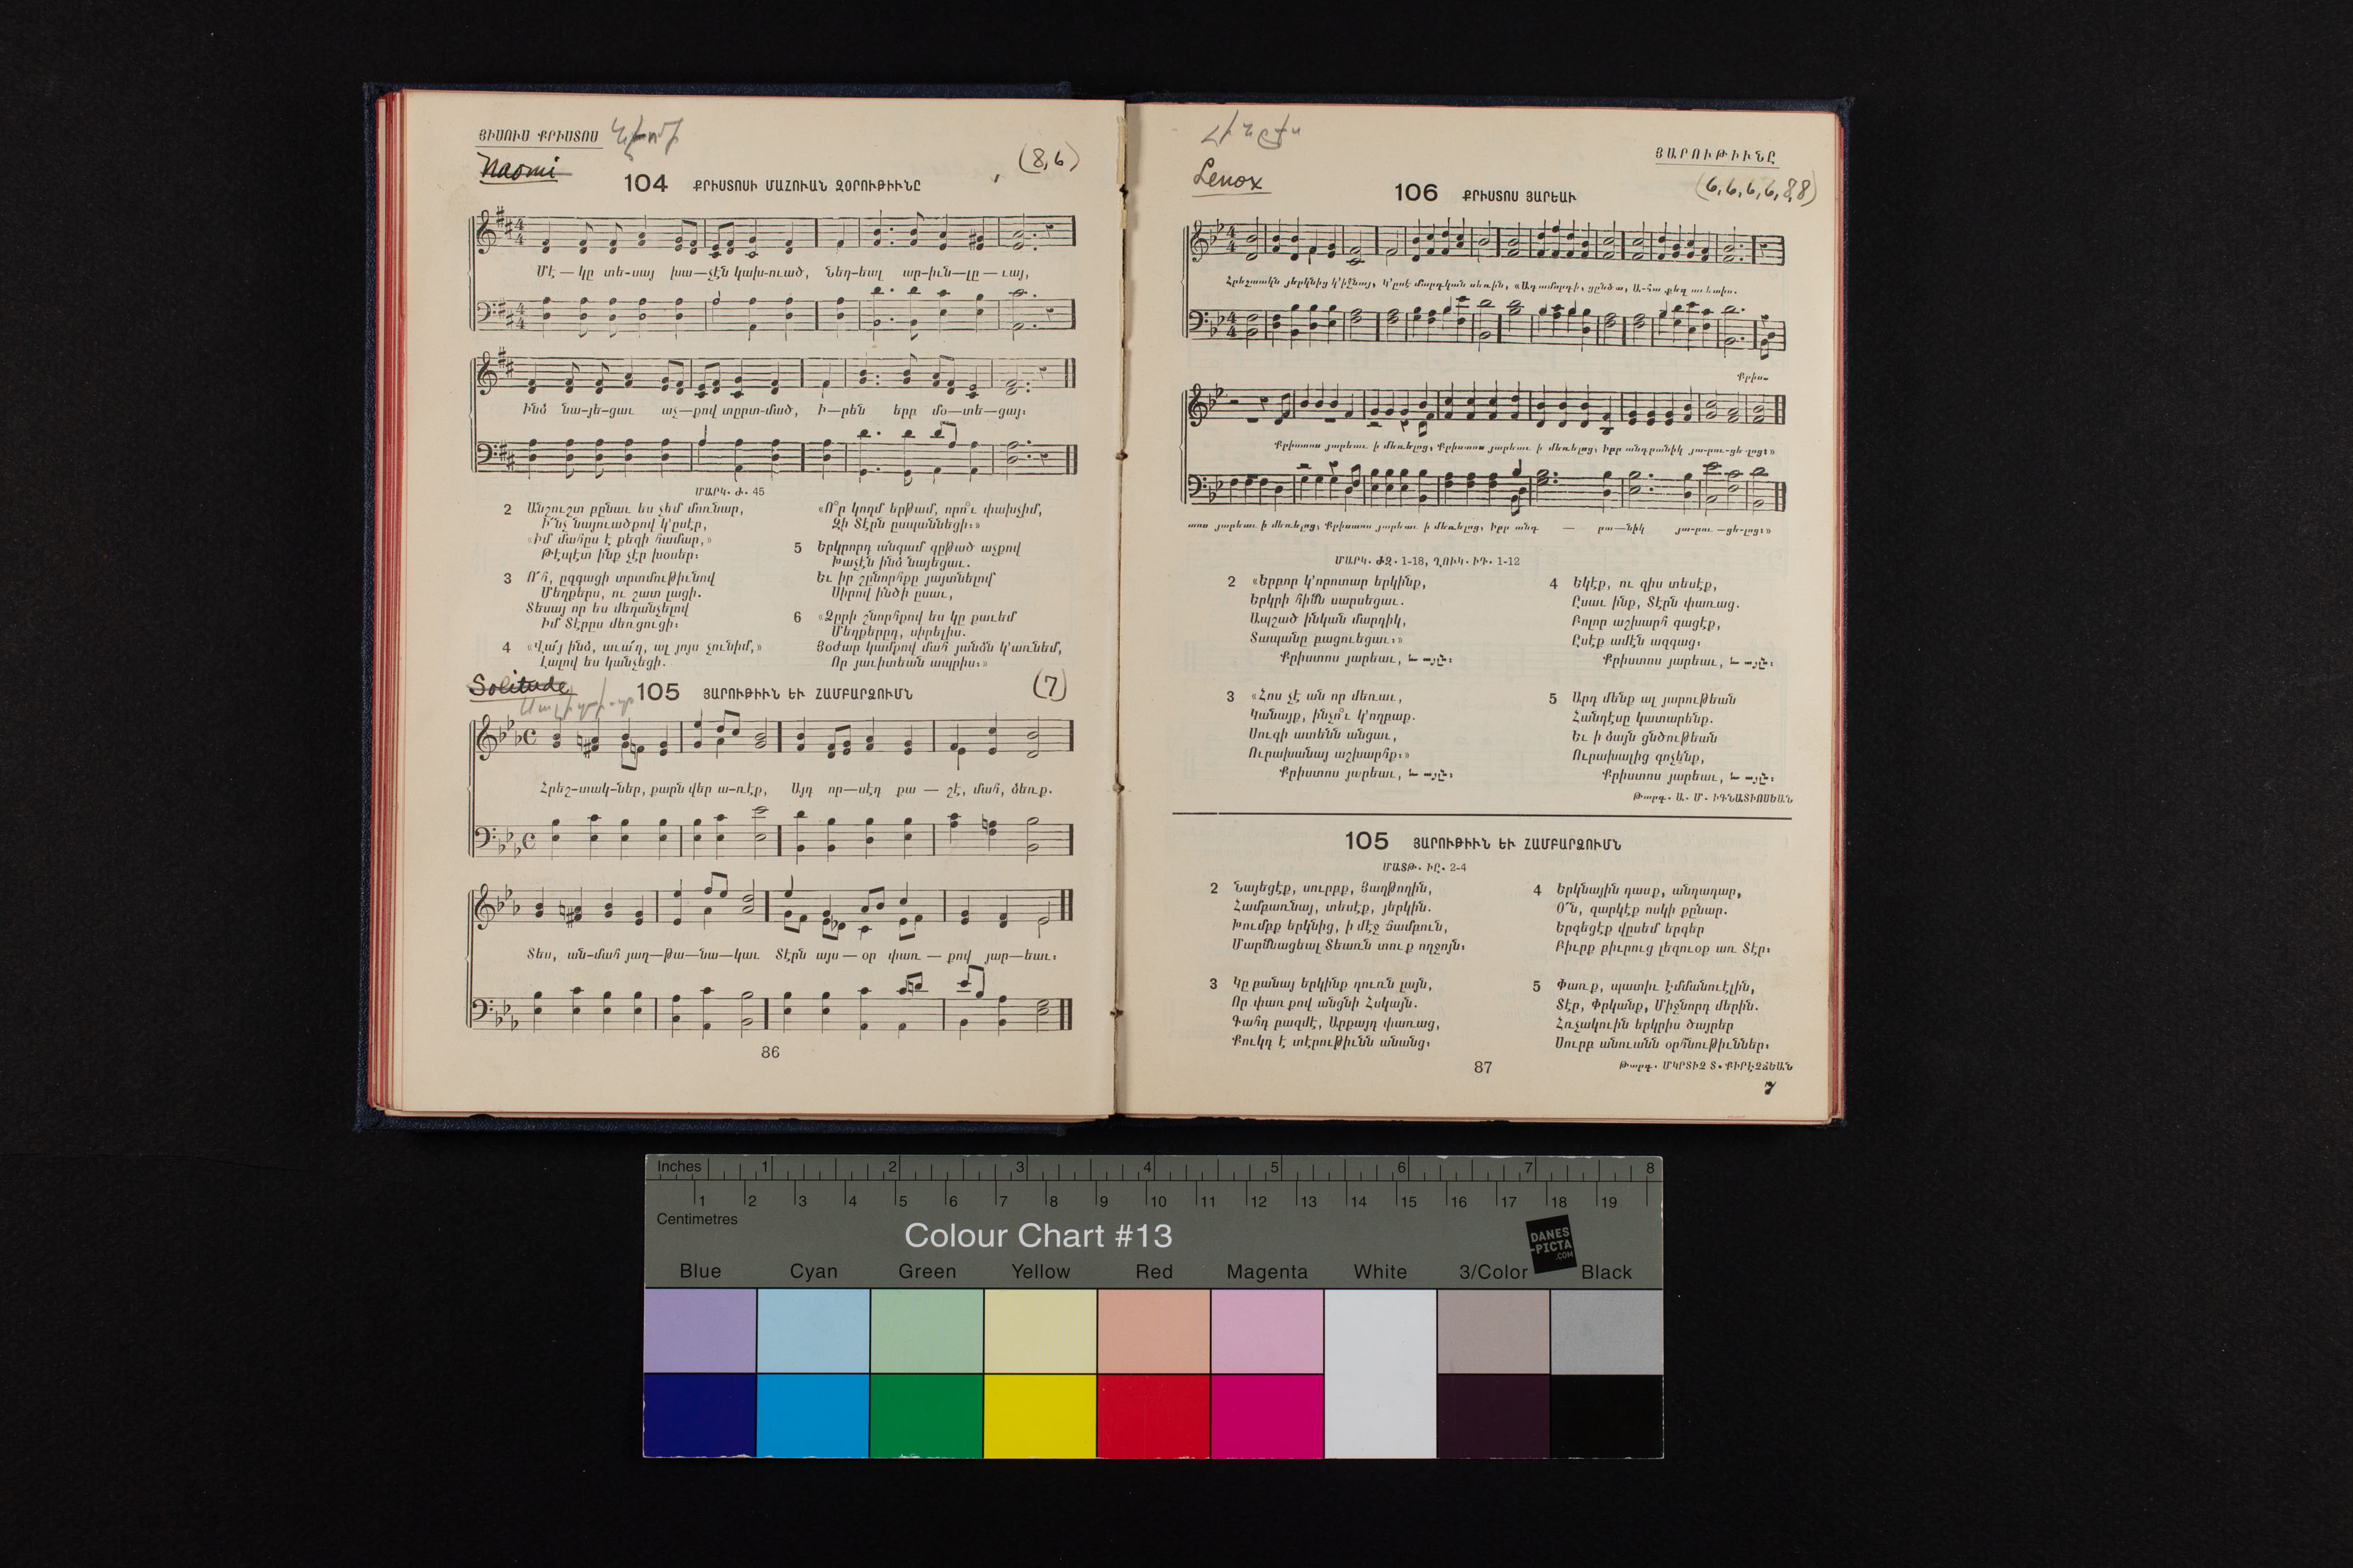 ՅԻՍՈՒՍ ՔՐԻՍՏՈՍ
Naomi
(8,6)
104 ՔՐԻՍՏՈՍԻ ՄԱՀՈՒԱՆ ԶՕՐՈՒԹԻՒՆԸ
Մէ — կը տե-սայ խա—չէն կախ-ուած, Նեղ-եալ ար-իւն—լը — ւայ,
Ինձ նա-յե-ցաւ աչ—քով տըրտ-մած, Ի—րեն երբ մօ—տե—ցայ։
ՄԱՐԿ. Ժ. 45
2 Անշուշտ բընաւ ես չեմ մոռնար,
Ի՜նչ նայուածքով կ'ըսէր,
«Իմ մահըս է քեզի համար,»
Թէպէտ ինք չէր խօսեր։
3 Ո՜հ, ըզգացի տրտմութիւնով
Մեղքերս, ու շատ լացի.
Տեսայ որ ես մեղանչելով
Իմ Տէրըս մեռցուցի։
4 «Վա՜յ ինձ, աւա՜ղ, ալ յոյս չունիմ,»
Լալով ես կանչեցի.
«Ո՞ր կողմ երթամ, որո՞ւ փախչիմ,
Զի Տէրն ըսպաննեցի։»
5 Երկրորդ անգամ գըթած աչքով
Խաչէն ինձ նայեցաւ.
Եւ իր շընորհքը յայտնելով
Սիրով ինծի ըսաւ,
6 «Ձրրի շնորհքով ես կը քաւեմ
Մեղքերըդ, սիրելիս.
Յօժար կամքով մահ յանձն կ'առնեմ,
Որ յաւիտեան ապրիս։»
Solitude
(7)
105 ՅԱՐՈՒԹԻՒՆ ԵՒ ՀԱՄԲԱՐՁՈՒՄՆ
Հրեշ-տակ-ներ, քարն վեր ա-ռէք, Այդ որ—սէդ քա — շէ, մահ, ձեռք.
Տես, ան-մահ յաղ—թա—նա—կաւ Տէրն այս — օր փառ — քով յար—եաւ։
86
ՅԱՐՈՒԹԻՒՆԸ
Lenox
(6,6,6,6,8,8)
106 ՔՐԻՍՏՈՍ ՅԱՐԵԱՒ
Հրեշտակն յերկնից կ'իջնայ, Կ'ըսէ մարդկան սեռին, «Ադամորդի, ցընծա, Ա-հա քեզ աւետիս.
Քրիս-
Քրիստոս յարեաւ ի մեռելոց, Քրիստոս յարեաւ ի մեռելոց, Իբր անդրանիկ յա-րու-ցե-լոց։»
տոս յարեաւ ի մեռելոց, Քրիստոս յարեաւ ի մեռելոց, Իբր անդ — րա—նիկ յա-րու —ցե-լոց։»
ՄԱՐԿ. ԺԶ. 1-18, ՂՈՒԿ. ԻԴ. 1-12
2 «Երբոր կ'որոտար երկինք,
Երկրի հիմն սարսեցաւ.
Ապշած ինկան մարդիկ,
Տապանը բացուեցաւ։»
Քրիստոս յարեաւ, և այլն։
3 «Հոս չէ ան որ մեռաւ,
Կանայք, ինչո՞ւ կ'ողբաք.
Սուգի ատենն անցաւ,
Ուրախանայ աշխարհք։»
Քրիստոս յարեաւ, և այլն։
4 Եկէք, ու զիս տեսէք,
Ըսաւ ինք, Տէրն փառաց.
Բոլոր աշխարհ գացէք,
Ըսէք ամէն ազգաց։
Քրիստոս յարեաւ, և այլն։
5 Արդ մենք ալ յարութեան
Հանդէսը կատարենք.
Եւ ի ձայն ցնծութեան
Ուրախալից գոչենք,
Քրիստոս յարեաւ, և այլն։
Թարգ. Ա. Մ. ԻԳՆԱՏԻՈՍԵԱՆ
105 ՅԱՐՈՒԹԻՒՆ ԵՒ ՀԱՄԲԱՐՁՈՒՄՆ
ՄԱՏԹ. ԻԸ. 2-4
2 Նայեցէք, սուրբք, Յաղթողին,
Համբառնայ, տեսէք, յերկին.
Խումբք երկնից, ի մէջ ճամբուն,
Մարմնացեալ Տեառն տուք ողջոյն։
3 Կը բանայ երկինք դուռն լայն,
Որ փառքով անցնի Հսկայն.
Գահդ բազմէ, Արքայդ փառաց,
Քուկդ է տէրութիւնն անանց։
4 Երկնային դասք, անդադար,
Օ՜ն, զարկէք ոսկի քընար.
Երգեցէք վըսեմ երգեր
Բիւրք բիւրուց լեզուօք առ Տէր։
5 Փառք, պատիւ Էմմանուէլին,
Տէր, Փրկանք, Միջնորդ մերին.
Հռչակուին երկրիս ծայրեր
Սուրբ անուանն օրհնութիւններ։
Թարգ. ՄԿՐՏԻՉ Տ. ՔԻՐԷՋՃԵԱՆ
87
7
Inches 1 2 3 4 5 6 7 8
1 2 3 4 5 6 7 8 9 10 11 12 13 14 15 16 17 18 19
Centimetres
Colour Chart #13
DANES
-PICTA
.COM
Blue Cyan Green Yellow Red Magenta White 3/Color Black